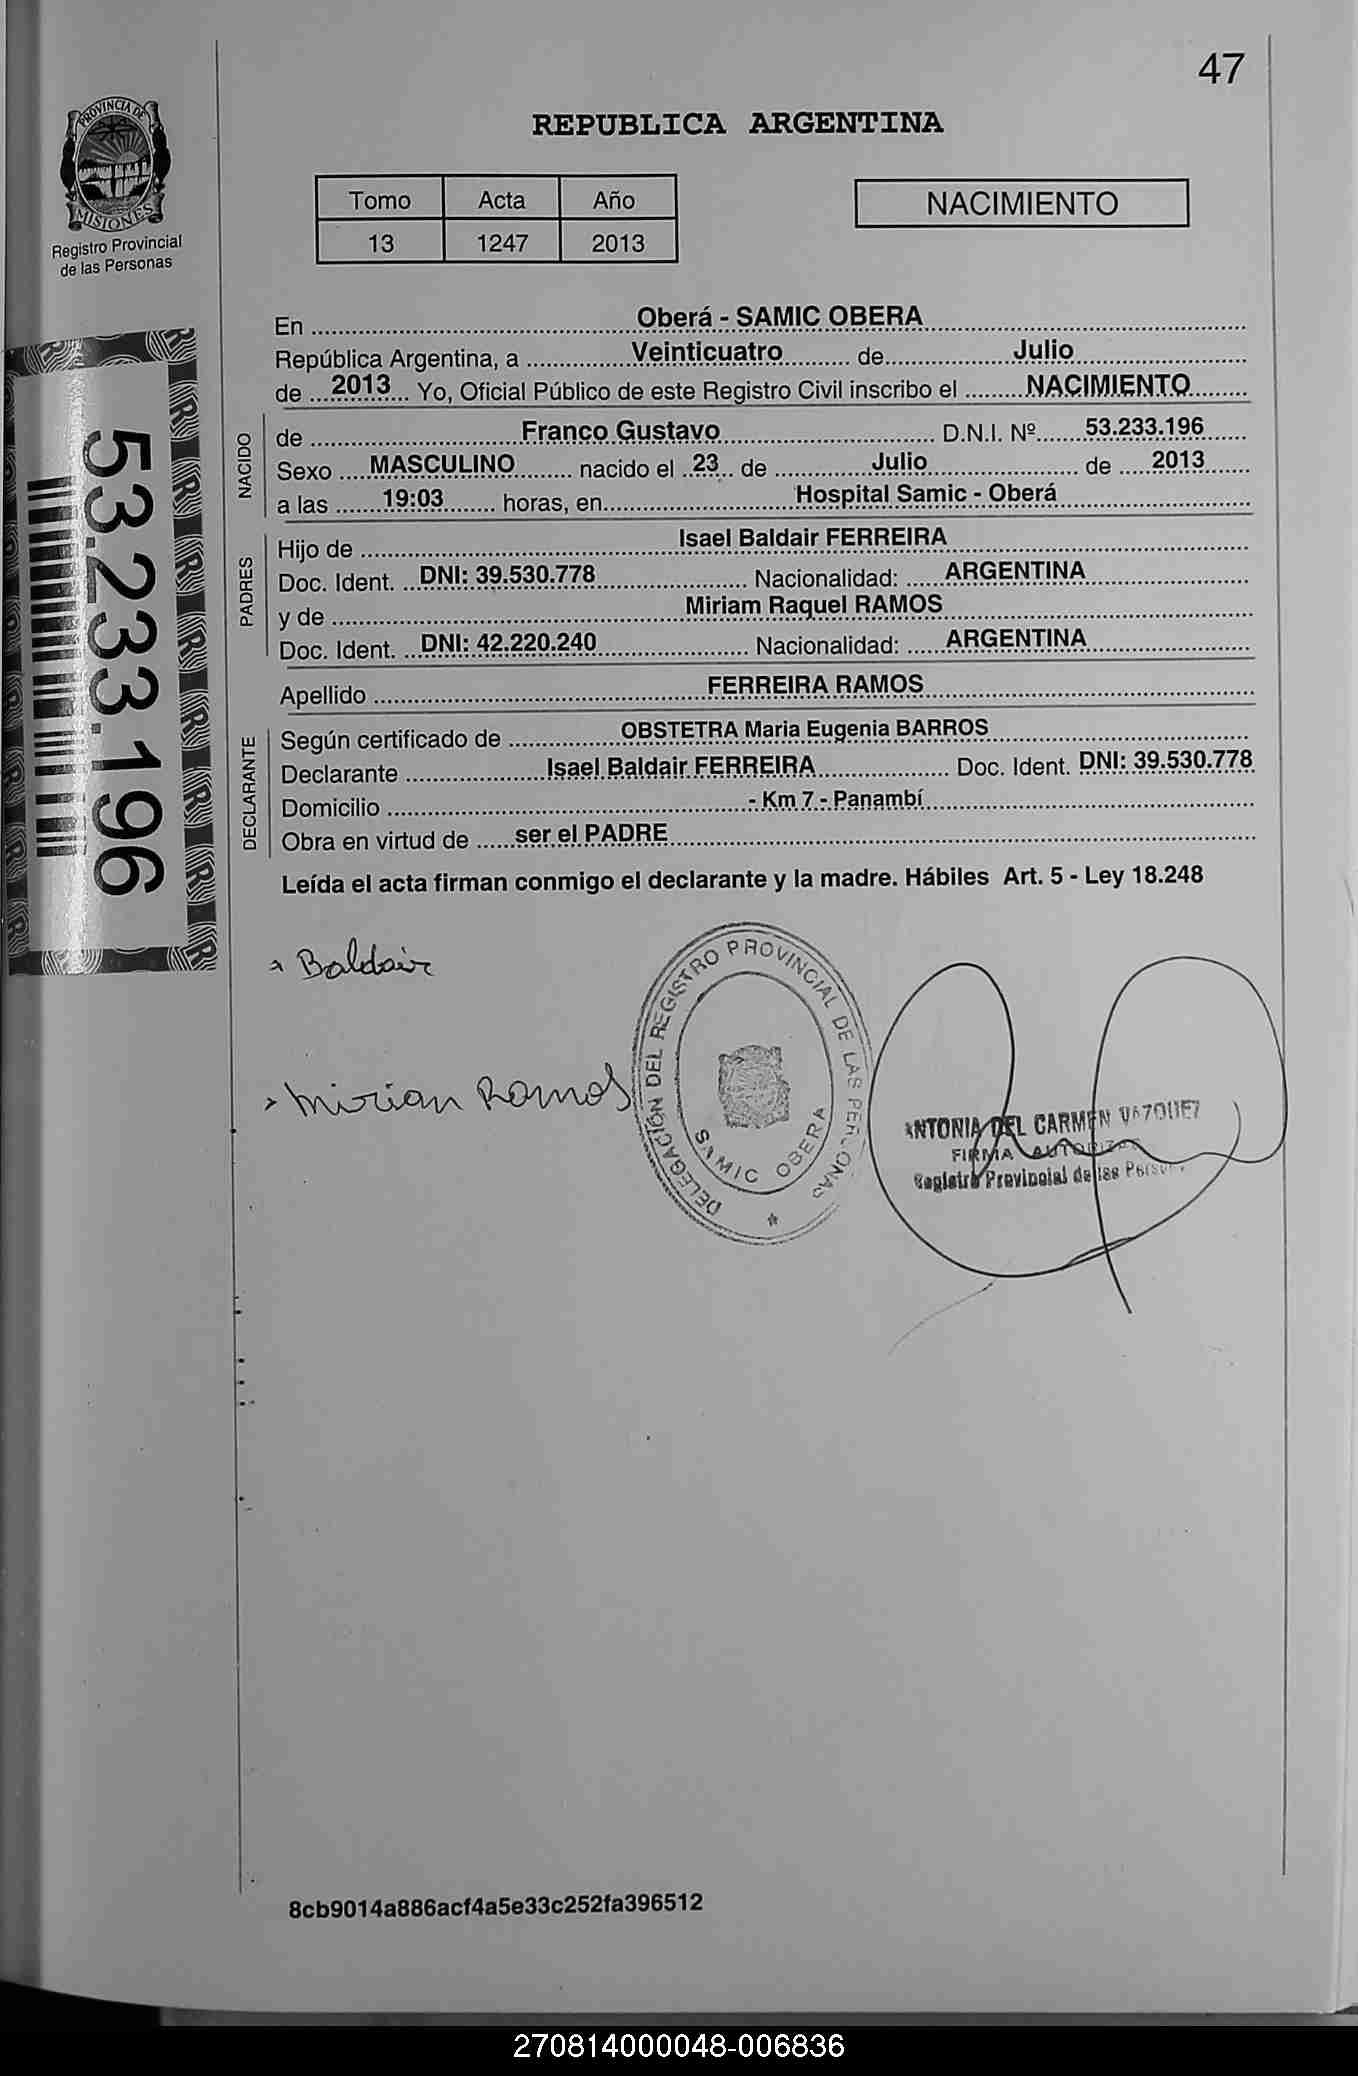 47
PROVINCIA DE
MISIONES
Registro Provincial
de las Personas
REPUBLICA ARGENTINA
Tomo Acta Año
13 1247 2013
NACIMIENTO
53.233.196
En Oberá - SAMIC OBERA
República Argentina, a Veinticuatro de Julio
de 2013 Yo, Oficial Público de este Registro Civil inscribo el NACIMIENTO
NACIDO
de Franco Gustavo D.N.I. Nº 53.233.196
Sexo MASCULINO nacido el 23 de Julio de 2013
a las 19:03 horas, en Hospital Samic - Oberá
PADRES
Hijo de Isael Baldair FERREIRA
Doc. Ident. DNI: 39.530.778 Nacionalidad: ARGENTINA
y de Miriam Raquel RAMOS
Doc. Ident. DNI: 42.220.240 Nacionalidad: ARGENTINA
Apellido FERREIRA RAMOS
DECLARANTE
Según certificado de OBSTETRA Maria Eugenia BARROS
Declarante Isael Baldair FERREIRA Doc. Ident. DNI: 39.530.778
Domicilio - Km 7 - Panambí
Obra en virtud de ser el PADRE
Leída el acta firman conmigo el declarante y la madre. Hábiles Art. 5 - Ley 18.248
Baldair
Mirian Ramos
DELEGACIÓN DEL REGISTRO PROVINCIAL DE LAS PERSONAS
SAMIC OBERA
ANTONIA DEL CARMEN VAZQUEZ
FIRMA
Registro Provincial de las
8cb9014a886acf4a5e33c252fa396512
270814000048-006836